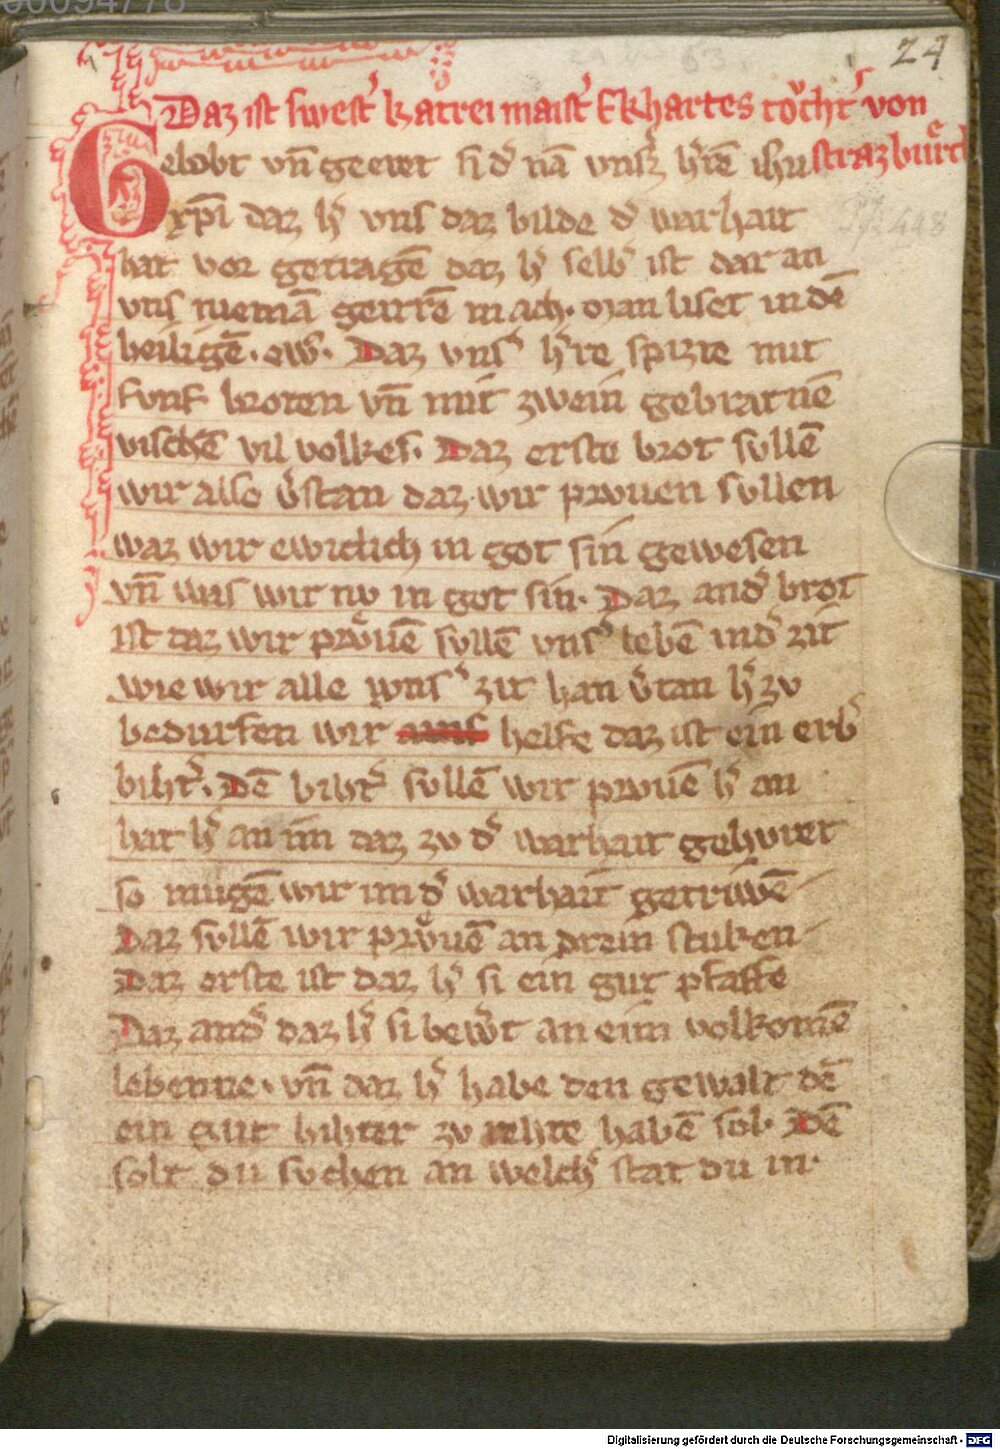 00094778
24
Daz ist swest᾽ katrei maist᾽ Ekhartes toͮcht᾽ von
strazbuͤrch
Gelobt vn̄ geeret si d᾽ nā vnsz h᾽rē ihu
xp̄i daz h᾽ vns daz bilde d᾽ warhait
hat vor getragē daz h᾽ selb᾽ ist dar an
vns niemā geirrē mach. man liset in dē
heiligē. ew᾽. Daz vns᾽ h᾽re spizte mit
funf broten vn̄ mit zwein gebratnē
vischē vil volkes. Daz erste brot svllē
wir also v᾽stan daz wir prvuen svllen
waz wir ewiclich in got sin gewesen
vn̄ was wir nv in got sin. Daz and᾽ brot
ist daz wir prvͤuē svllē vns᾽ lebē in d᾽ zit
wie wir alle vns᾽ zit han v᾽tan h᾽ zv
bedurfen wir helfe daz ist ein erb᾽
biht᾽. Dē biht᾽ svllē wir prvuē h᾽ an
hat h᾽ an im daz zv d᾽ warhait gehvret
so mugē wir im d᾽ warhait getriwē
Daz svllē wir prvͤuē an drein stuken
Daz erste ist daz h᾽ si ein gut pfaffe
Daz and᾽ daz h᾽ si bew᾽t an eim volkomē
lebenne. vn̄ daz h᾽ habe den gewalt dē
ein gut bihter zv rehte habē sol. Dē
solt du svchen an welch᾽ stat du in.
Digitalisierung gefördert durch die Deutsche Forschungsgemeinschaft - DFG